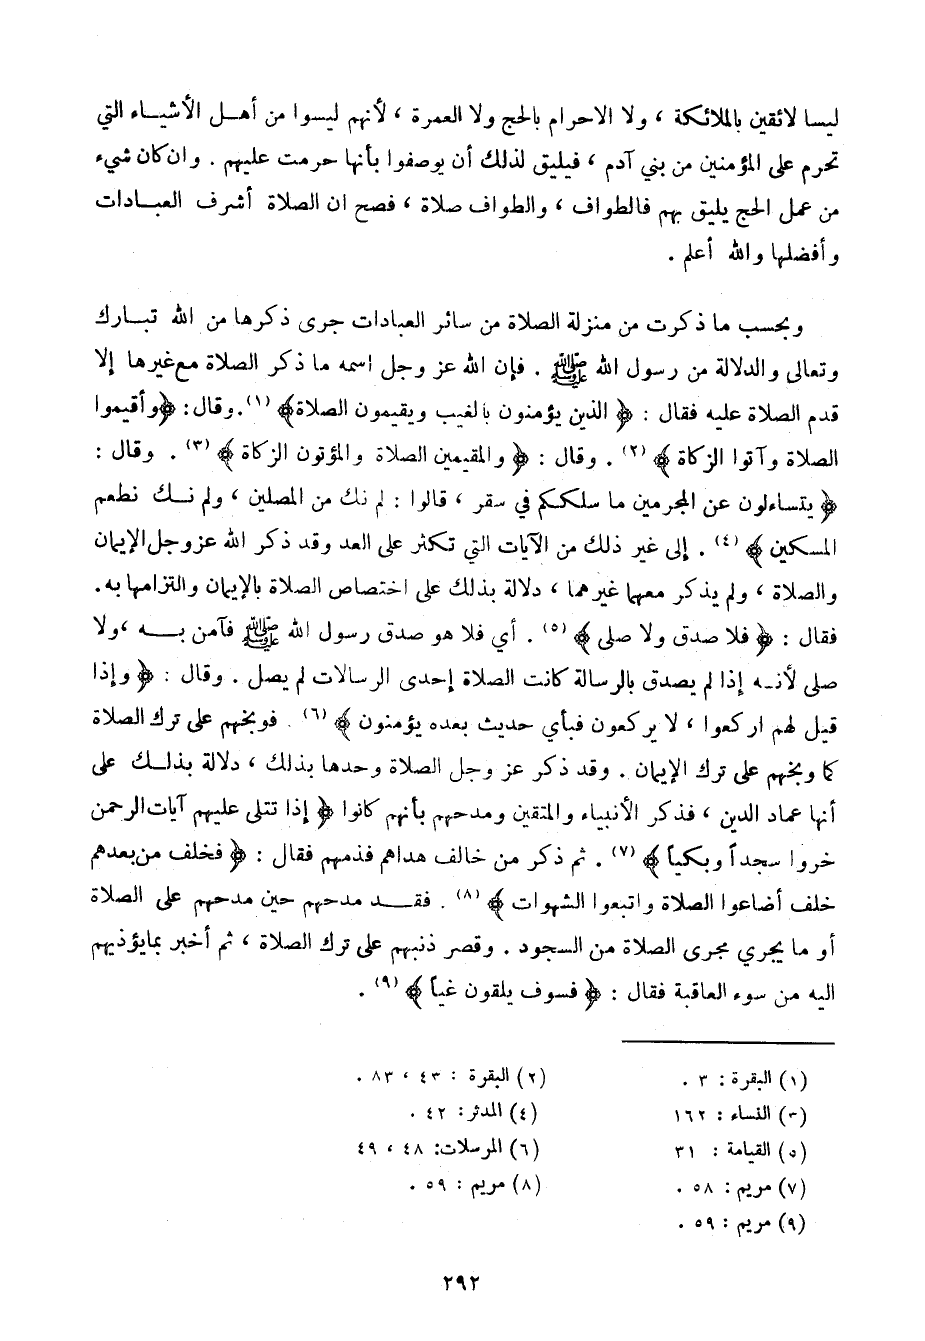 ليسا لائقين بالملائكة ، ولا الاحرام بالحج ولا العمرة ، لأنهم ليسوا من أهل الأشياء التي
تحرم على المؤمنين من بني آدم ، فيليق لذلك أن يوصفوا بأنها حرمت عليهم . وان كان شيء
من عمل الحج يليق بهم فالطواف ، والطواف صلاة ، فصح ان الصلاة أشرف العبادات
وأفضلها والله أعلم .
وبحسب ما ذكرت من منزلة الصلاة من سائر العبادات جرى ذكرها من الله تبارك
وتعالى والدلالة من رسول الله ﷺ . فإن الله عز وجل اسمه ما ذكر الصلاة مع غيرها إلا
قدم الصلاة عليه فقال : ﴿ الذين يؤمنون بالغيب ويقيمون الصلاة﴾ (١). وقال: ﴿وأقيموا
الصلاة وآتوا الزكاة ﴾ (٢) . وقال : ﴿ والمقيمين الصلاة والمؤتون الزكاة ﴾ (٣) . وقال :
﴿ يتساءلون عن المجرمين ما سلككم في سقر ، قالوا : لم نك من المصلين ، ولم نك نطعم
المسكين ﴾ (٤) . إلى غير ذلك من الآيات التي تكثر على العد وقد ذكر الله عز وجل الإيمان
والصلاة ، ولم يذكر معهما غيرهما ، دلالة بذلك على اختصاص الصلاة بالإيمان والتزامها به.
فقال : ﴿ فلا صدق ولا صلى ﴾ (٥) . أي فلا هو صدق رسول الله ﷺ فآمن به ، ولا
صلى لأنه إذا لم يصدق بالرسالة كانت الصلاة إحدى الرسالات لم يصل . وقال : ﴿ وإذا
قيل لهم اركعوا ، لا يركعون فبأي حديث بعده يؤمنون ﴾ (٦) . فوبخهم على ترك الصلاة
كما وبخهم على ترك الإيمان . وقد ذكر عز وجل الصلاة وحدها بذلك ، دلالة بذلك على
أنها عماد الدين ، فذكر الأنبياء والمتقين ومدحهم بأنهم كانوا ﴿ إذا تتلى عليهم آيات الرحمن
خروا سجداً وبكياً ﴾ (٧) . ثم ذكر من خالف هداهم فذمهم فقال : ﴿ فخلف من بعدهم
خلف أضاعوا الصلاة واتبعوا الشهوات ﴾ (٨) . فقد مدحهم حين مدحهم على الصلاة
أو ما يجري مجرى الصلاة من السجود . وقصر ذنبهم على ترك الصلاة ، ثم أخبر بما يؤذيهم
اليه من سوء العاقبة فقال : ﴿ فسوف يلقون غياً ﴾ (٩) .
(١) البقرة : ٣ . (٢) البقرة : ٤٣ ، ٨٣ .
(٣) النساء : ١٦٢ (٤) المدثر: ٤٢ .
(٥) القيامة : ٣١ (٦) المرسلات: ٤٨ ، ٤٩
(٧) مريم : ٥٨ . (٨) مريم : ٥٩ .
(٩) مريم : ٥٩ .
٢٩٢